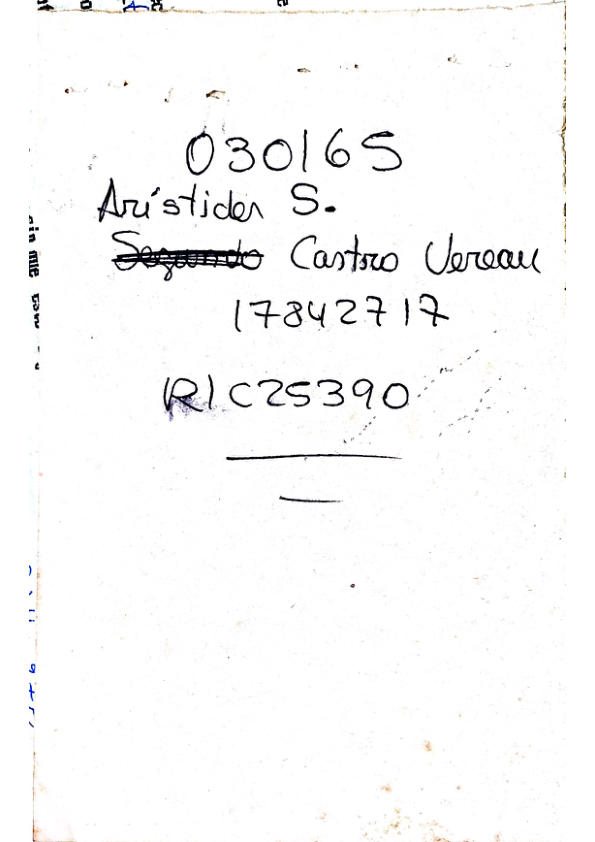 030165
Arístides S.
Segundo Castro Vereau
17842717
R1C25390